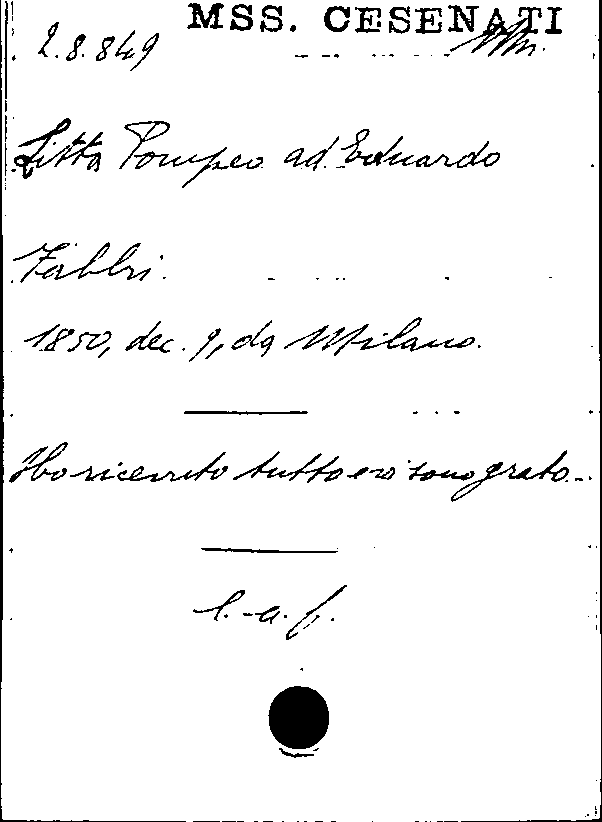 MSS. CESENATI
2.8.849
Litta Pompeo ad Eduardo
Fabbri.
1850, dec. 9, da Milano.
Ho ricevuto tutto e vi sono grato...
l. a. f.